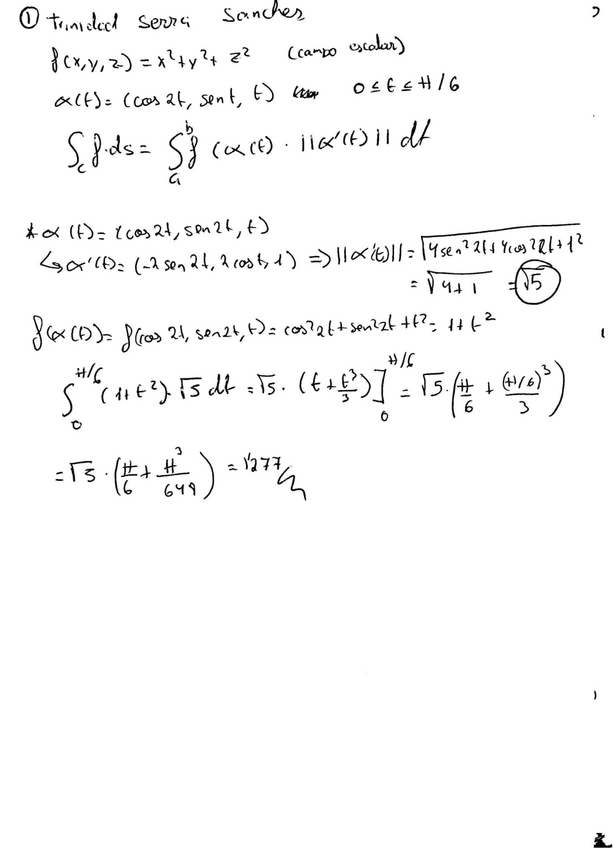 ① trinidad Serra Sanches
f(x,y,z) = x²+y²+z² (campo escalar)
α(t) = (cos 2t, sen t, t) 0 ≤ t ≤ π/6
∫_C f·ds = ∫_a^b f(α(t)·||α'(t)|| dt
* α(t) = (cos 2t, sen 2t, t)
↳ α'(t) = (-2 sen 2t, 2 cos t, 1) ⇒ ||α'(t)|| = √(4 sen² 2t + 4 cos² 2t + 1²
= √(4+1) = √5
f(α(t)) = f(cos 2t, sen 2t, t) = cos² 2t + sen² 2t + t² = 1+t²
∫_0^{π/6} (1+t²)·√5 dt = √5·(t + t³/3)]_0^{π/6} = √5·(π/6 + (π/6)³/3)
= √5·(π/6 + π³/648) = 1'277